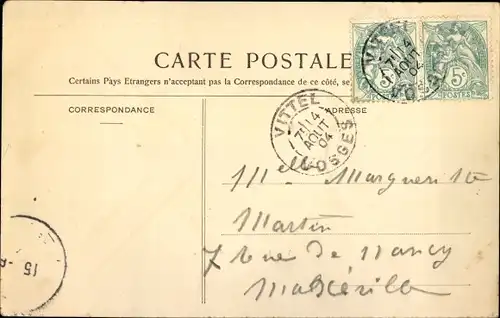 CARTE POSTALE
Certains Pays Etrangers n'acceptant pas la Correspondance de ce côté, se
CORRESPONDANCE
ADRESSE
VITTEL
7 14
AOUT
04
VOSGES
VITTEL
7 14
AOUT
04
VOSGES
5c
POSTES
Melle Marguerite
Martin
7 Rue de Nancy
15